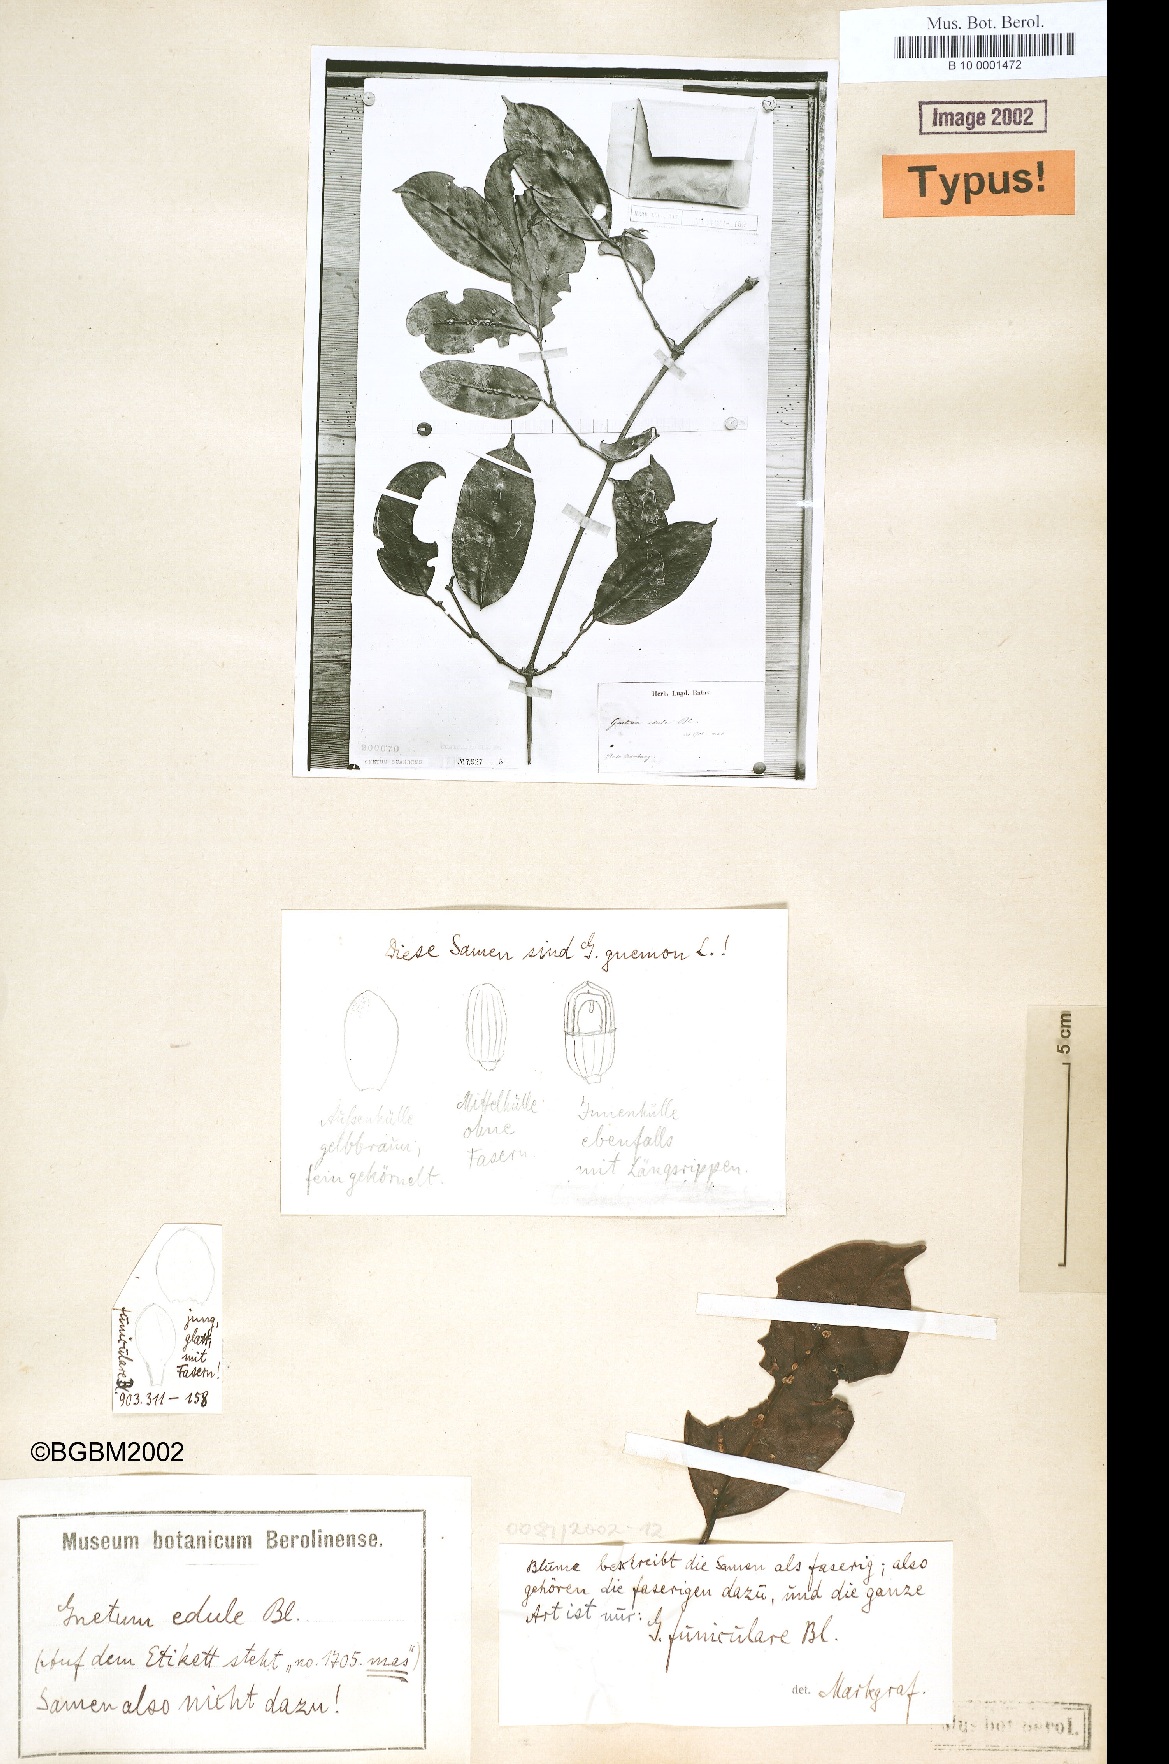 Mus. Bot. Berol.
B 10 0001472
Image 2002
Typus!
Herb. Lugd. Batav.
Diese Samen sind G. gnemon L.!
Außenhülle
gelbbraun;
fein gekörnelt.
Mittelhülle
ohne
Fasern.
Innenhülle
ebenfalls
mit Längsrippen.
5 cm
funiculare
jung,
glatt,
mit
Fasern!
903.311–158
©BGBM2002
Museum botanicum Berolinense.
Gnetum edule Bl.
(Auf dem Etikett steht „no. 1705. mas“)
Samen also nicht dazu!
Blume beschreibt die Samen als faserig; also
gehören die faserigen dazu, und die ganze
Art ist nur:
G. funiculare Bl.
det. Markgraf.
Mus bot Berol.